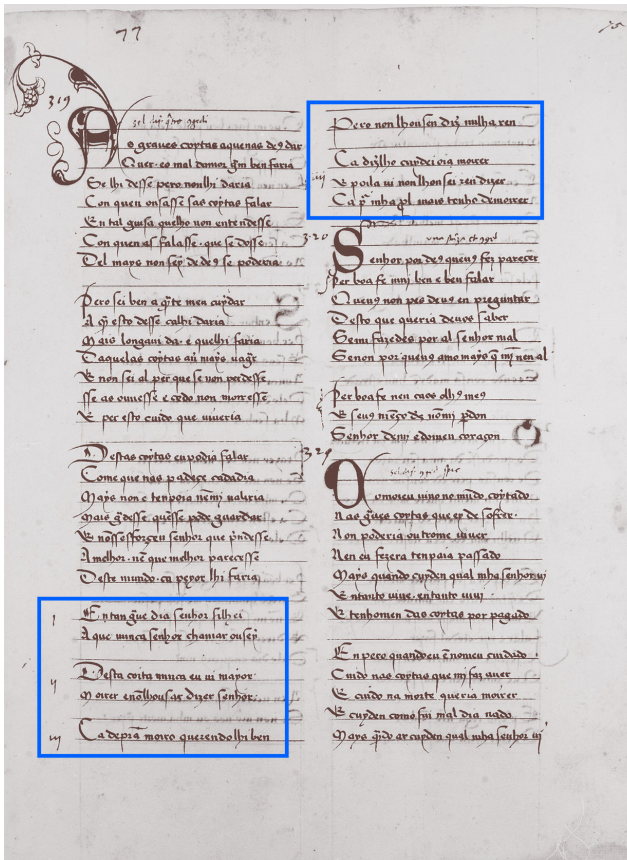 77
319
A
o graves coytas aquenas de9 dar
Quer· eo mal damor gm̃ ben faria
Se lhi desse pero nonlhi daria
Con quen onsasse sas coytas falar
En tal guisa quelho non entendesse
Con quen as falasse· que se doesse
Del mays non sey de de9 se poderia·
Pero sei ben a q̃te meu cuydar
A q̃ esto desse ca lhi daria
Mais longa ui da· e quelhi faria
Daquelas coytas auer mays uagr̃
E non sei al per que se non perdesse
sse ao ouuesse e cedo non morresse
E per esto cuido que uiueria
Destas coytas eu podia falar
Come que nas padeçe cadadia
Mays non e tenpo ia nẽmi ualiria
Mais g̃desse quẽsse pode guardar
E nosse sforçen senhor que p̃ndesse
A melhor· nẽ que melhor parecesse
Deste mundo· ca peyor lhi faria
I Entan g̃ue dia senhor filhei
A que nunca senhor chamar ousey
ij Desta coita nunca eu ui mayor·
Morrer enõlhousar dizer senhor·
iij Ca de prã moiro querendolhi ben
Pero non lhousen diz̃ nulha ren
Ca dizlho cuydei oia morrer
iiij E poila ui nonlhonsei ren dizer
Ca p̃ inha pl mais tenho de morrer
320
Senhor por de9 que u9 fez pareçer
Per boa fe muj ben e ben falar
Que u9 non pes deu9 en preguntar
Desto que queria deuos saber
Semi fazedes por al senhor mal
Senon por que u9 amo mays q̃ mĩ nen al
Per boa fe nen ca os olh9 me9
E se u9
Senhor demi e domeu coraçon
O
O
omoreu uiuo no mũdo coytado
Nas g̃ues coytas que ei de sofrer·
Non poderia outr ome uiuer
Nen eu fezera tenpa ia passado
Mays quando cuyden qual mha senhor ui
Entanto uiue· entanto uiui
E tenhomen das coytas por pagado
En pero quando eu ẽ no meu cuidado·
Cuido nas coytas que mi faz auer
E cuido na morte queria moirer
E cuyden como fui mal dia nado
Mays q̃do ar cuyden qual mha senhor ui